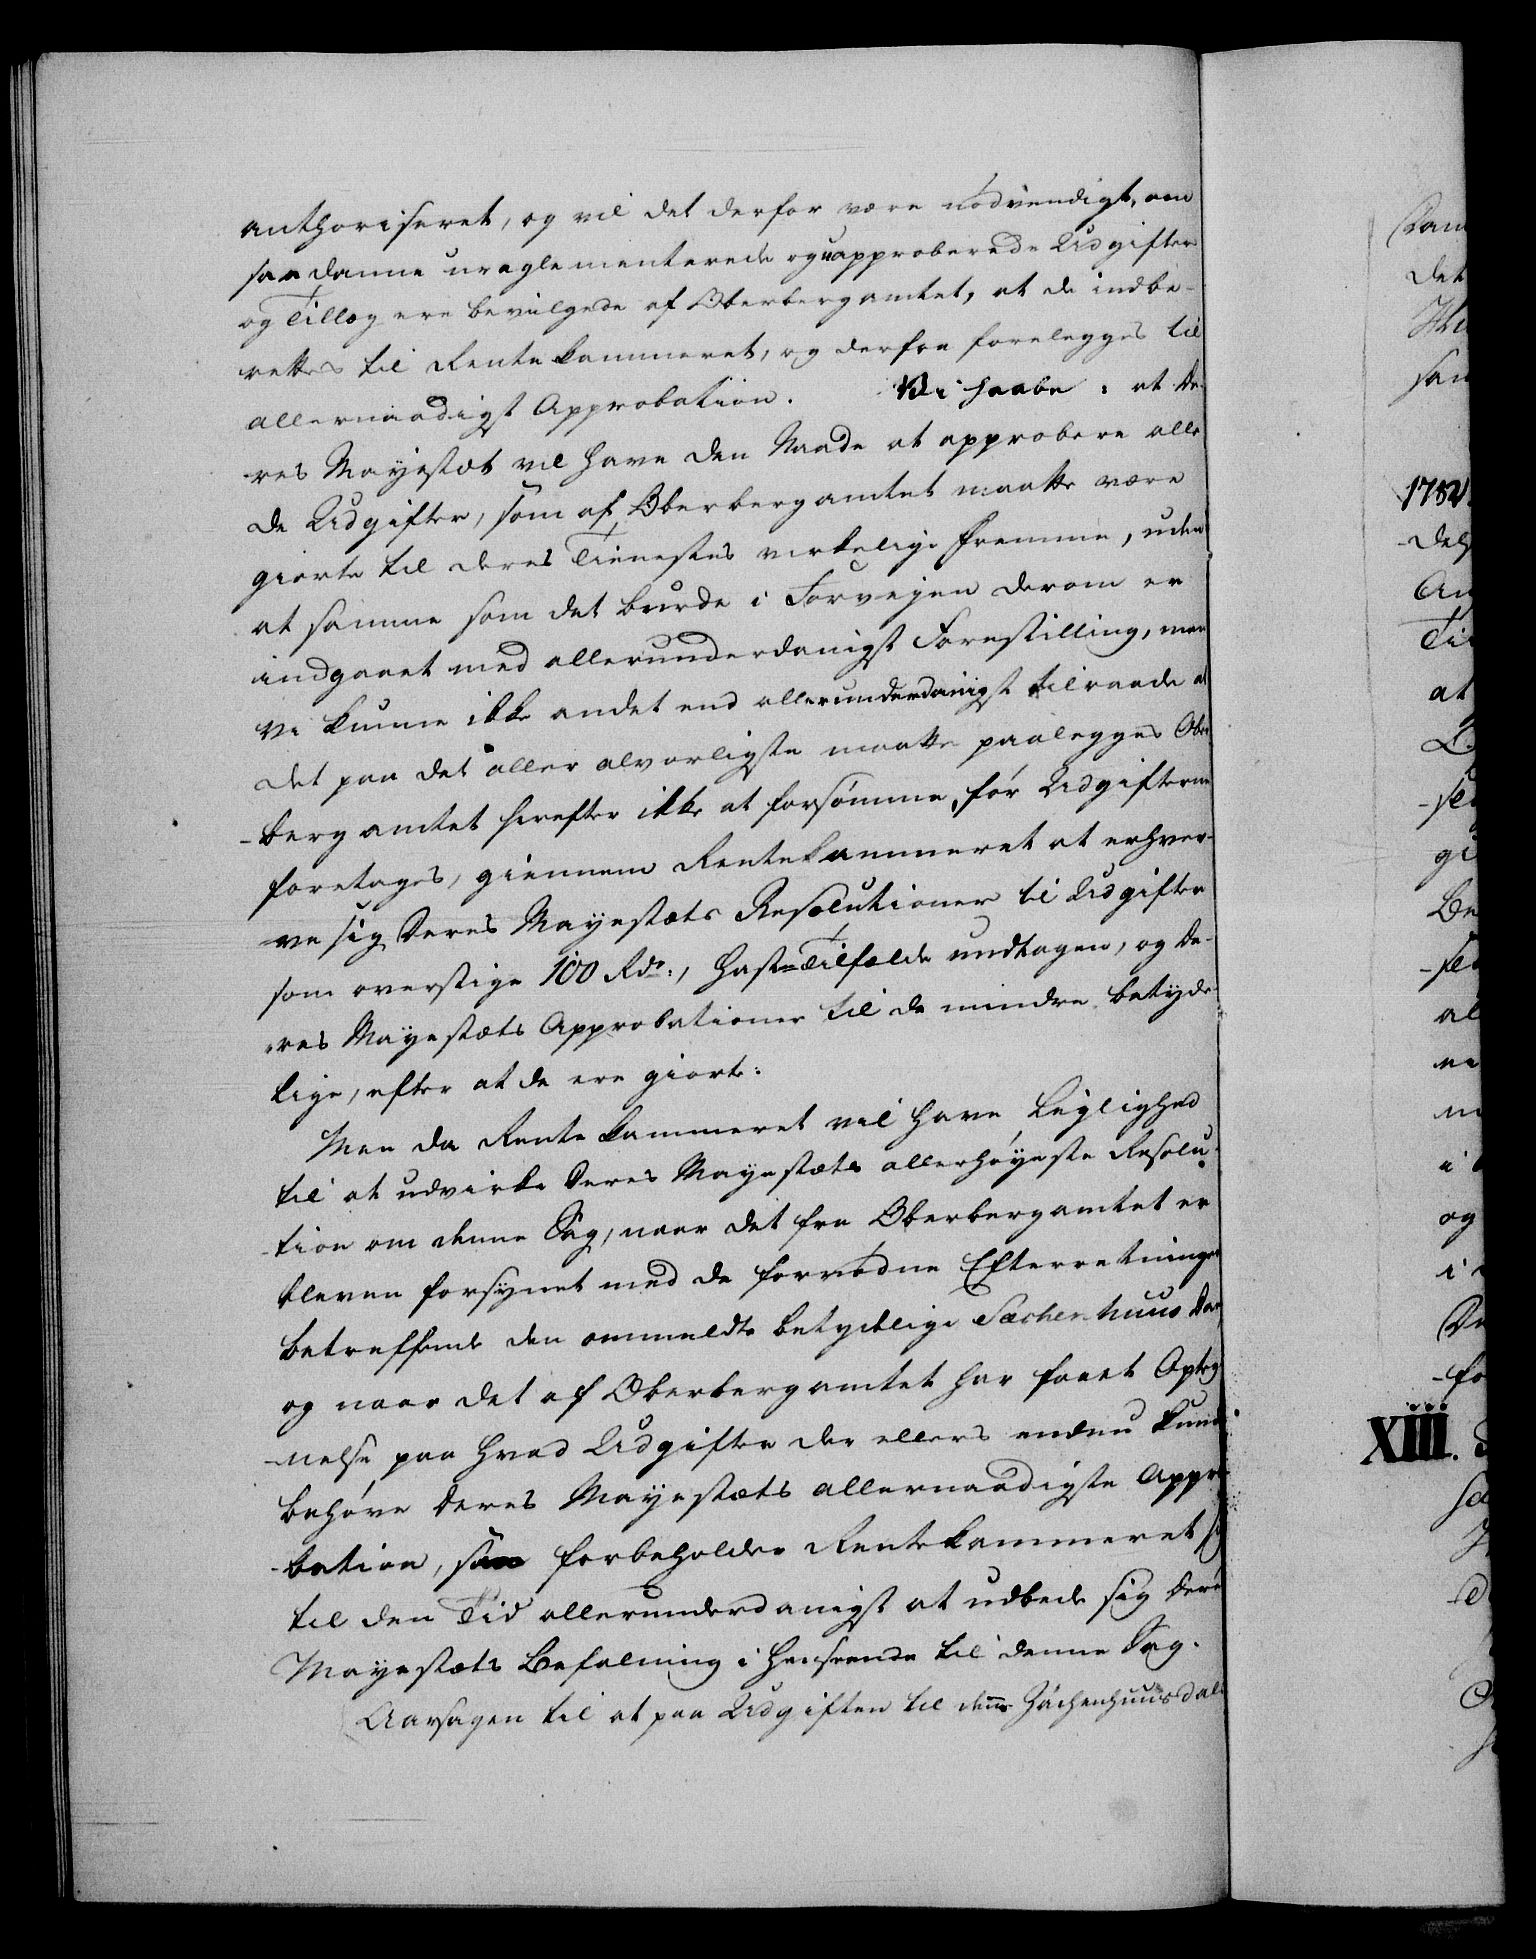 authoriseret, og vil det derfor være nødvendigt, om
saadanne ureglementerede og uapproberede Udgifter
og Tillæg ere bevilgede af Oberbergamtet, at de indbe-
rettes til Rentekammeret, og derfra forelegges til
allernaadigst Approbation. Vi haabe: at De-
res Mayestæt vil have den Naade at approbere alle
de Udgifter, som af Oberbergamtet maatte være
giorte til Deres Tienestes virkelige Fremme, uden
at samme som det burde i Forvejen derom er
indgaaet med allerunderdanigst Forestilling, men
vi kunne ikke andet end allerunderdanigst tilraade at
det paa det aller alvorligste maatte paalegges Ober-
-bergamtet herefter ikke at forsømme, før Udgifterne
foretages, giennem Rentekammeret at erhver-
ve sig Deres Mayestæts Resolutioner til Udgifter
som overstige 100 Rdr., Haste-Tilfælde undtagen, og De-
res Mayestæts Approbationer til de mindre betyde-
lige, efter at de ere giorte.
Men da Rentekammeret vil have Leylighed
til at udvirke Deres Mayestæts allerhøyeste Resolu-
tion om denne Sag, naar det fra Oberbergamtet er
bleven forsynet med de fornødne Efterretninger
betreffende den ommeldte betydelige Sachenhuus Dam
og naar det af Oberbergamtet har faaet Opteg-
-nelse paa hvad Udgifter der ellers endnu kunde
behøve Deres Mayestæts allernaadigste Appro-
-bation, saa forbeholder Rentekammeret sig
til den Tid allerunderdanigst at udbede sig Deres
Mayestæts Befalning i Henseende til denne Sag.
Aarsagen til at paa Udgiften til denne Zächenhuusdal
det
san
1782
Au
Tie
at
gi
Be
al
og
De
-fo
XIII.